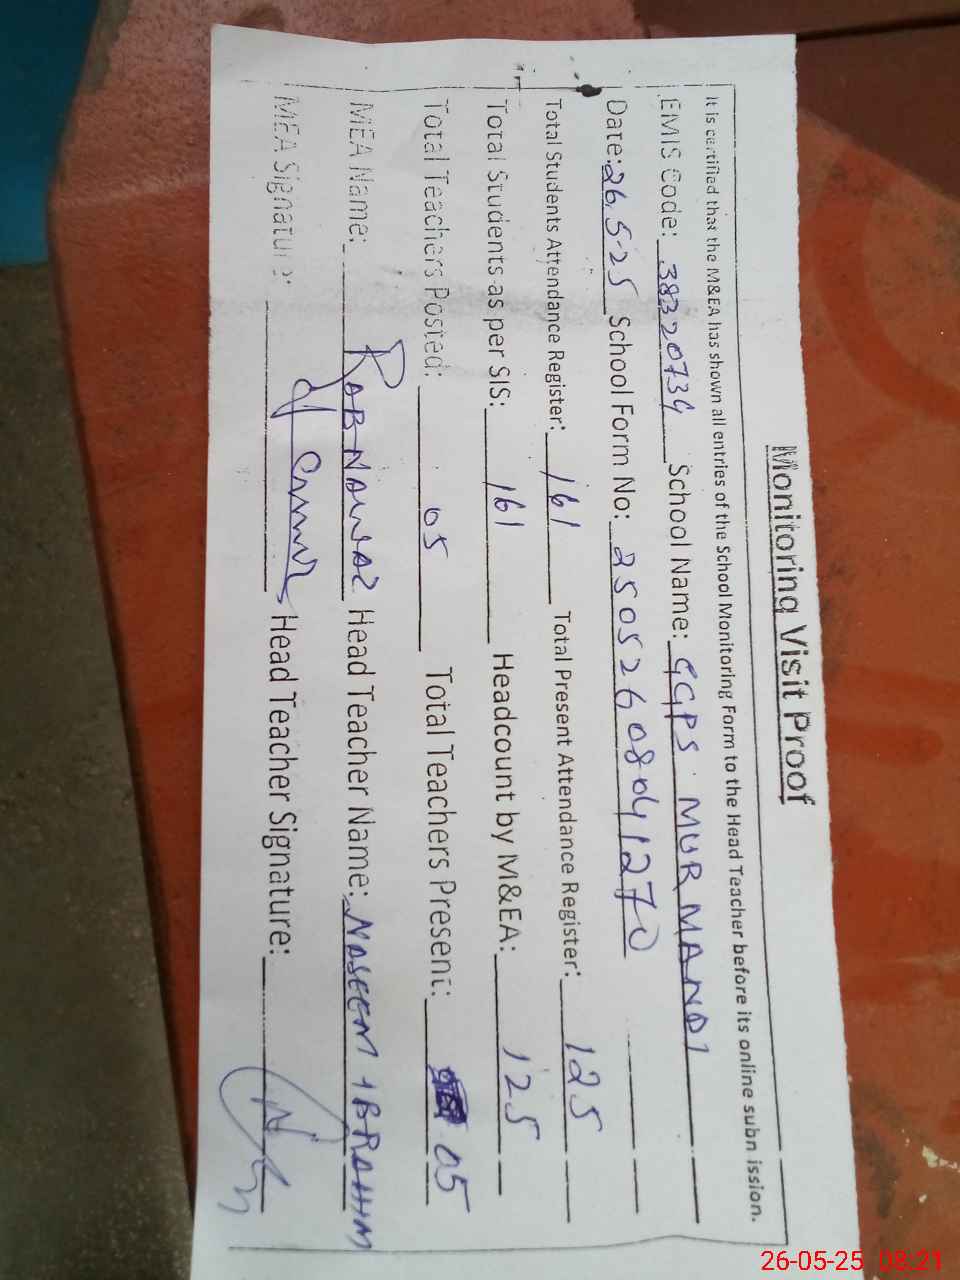 Monitoring Visit Proof
It is certified that the M&EA has shown all entries of the School Monitoring Form to the Head Teacher before its online subn ission.
EMIS Code: 38320734 School Name: GGPS MUR MANDI
Date: 26.5-25 School Form No: 250526080841270
Total Students Attendance Register: 161 Total Present Attendance Register: 125
Total Students as per SIS: 161 Headcount by M&EA: 125
Total Teachers Posted: 05 Total Teachers Present: 05
MEA Name: RAB NAWAZ Head Teacher Name: NASEEM IBRAHIM
MEA Signature: Head Teacher Signature:
26-05-25 08:21